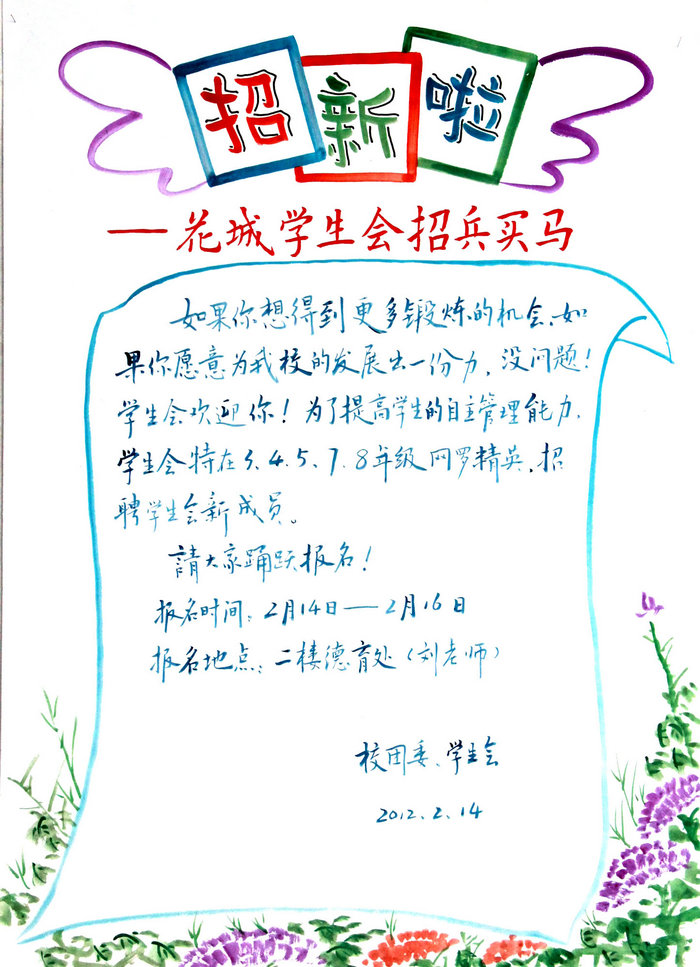 招新啦
—花城学生会招兵买马
如果你想得到更多锻炼的机会、如
果你愿意为我校的发展出一份力，没问题！
学生会欢迎你！为了提高学生的自主管理能力，
学生会特在3、4、5、7、8年级网罗精英，招
聘学生会新成员。
請大家踊跃报名！
报名时间：2月14日——2月16日
报名地点：二楼德育处（刘老师）
校团委、学生会
2012.2.14